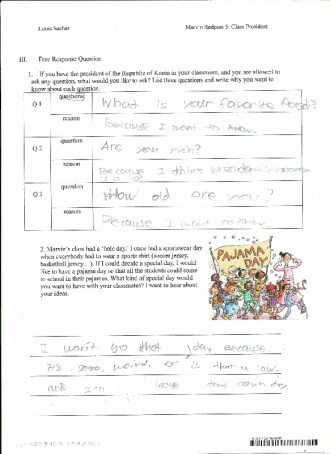 Louis Sachar
Marvin Redpost 5: Class President
III. Free Response Question
1. If you have the president of the Republic of Korea in your classroom, and you are allowed to
ask any question, what would you like to ask? List three questions and write why you want to
know about each question.
Q 1
questions
What is your favorite food?
reason
Because I want to know.
Q 2
question
Are you rich?
reason
Because I think president
is a lot
Q 3
question
How old are you?
reason
Because I want to know
2. Marvin's class had a "hole day." I once had a sportswear day
when everybody had to wear a sports shirt (soccer jersey,
basketball jersey…). If I could decide a special day, I would
like to have a pajama day so that all the students could come
to school in their pajamas. What kind of special day would
you want to have with your classmates? I want to hear about
your ideas.
PAJAMA
DAY
I won't do that day because
it's some weird, or is than a law.
and I'm leave they country.